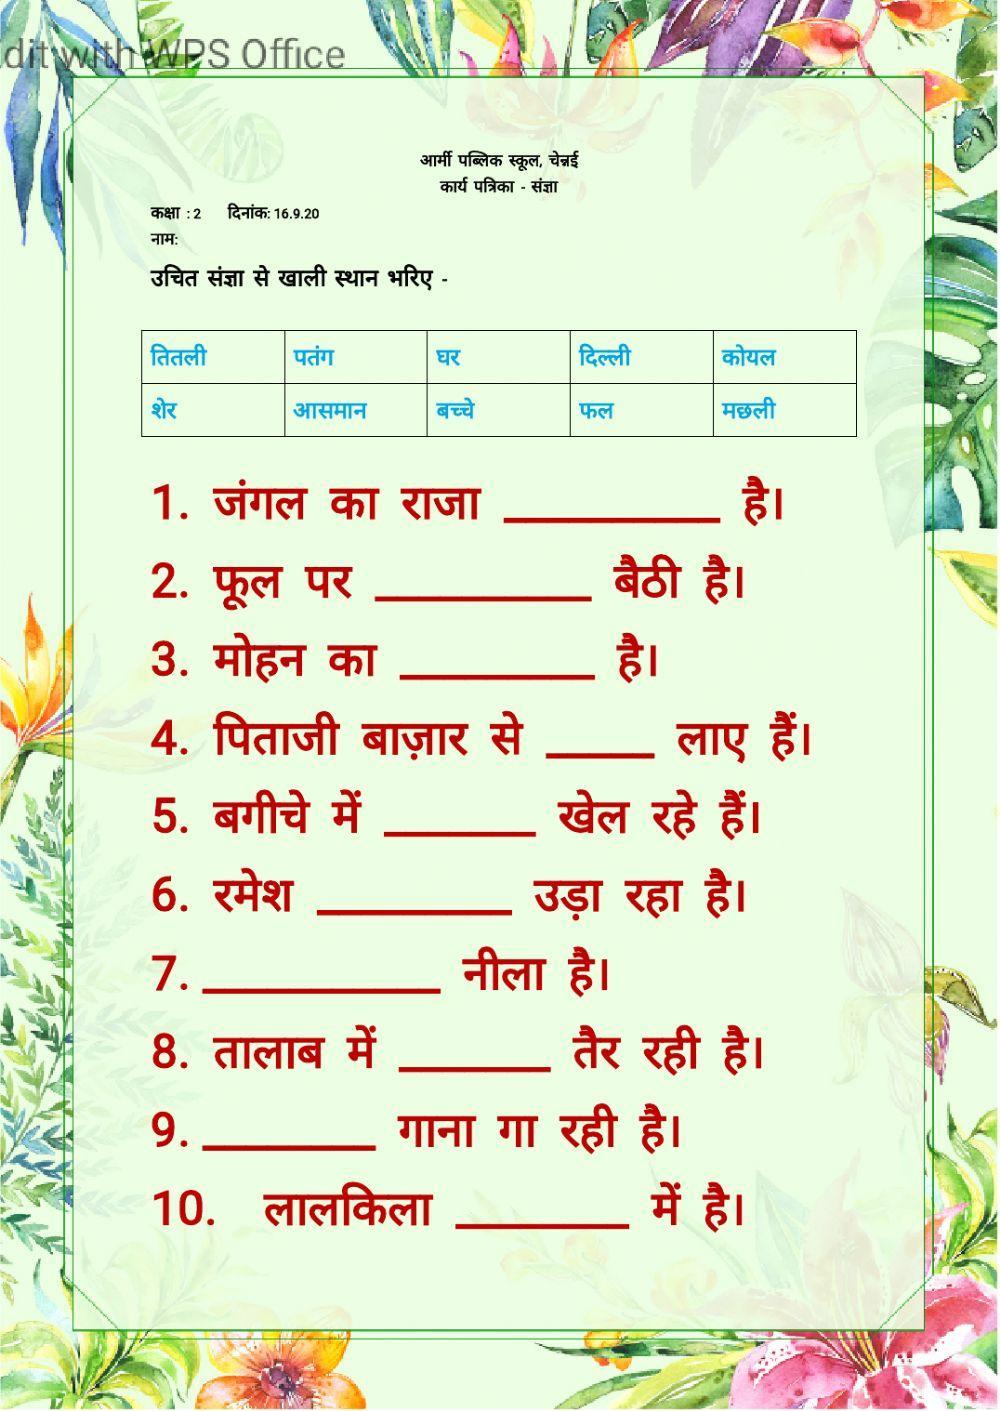 dit with WPS Office
आर्मी पब्लिक स्कूल, चेन्नई
कार्य पत्रिका - संज्ञा
कक्षा : 2 दिनांक: 16.9.20
नाम:
उचित संज्ञा से खाली स्थान भरिए -
तितली पतंग घर दिल्ली कोयल
शेर आसमान बच्चे फल मछली
1. जंगल का राजा __________ है।
2. फूल पर __________ बैठी है।
3. मोहन का _________ है।
4. पिताजी बाज़ार से _____ लाए हैं।
5. बगीचे में _______ खेल रहे हैं।
6. रमेश _________ उड़ा रहा है।
7. ___________ नीला है।
8. तालाब में _______ तैर रही है।
9. ________ गाना गा रही है।
10. लालकिला ________ में है।